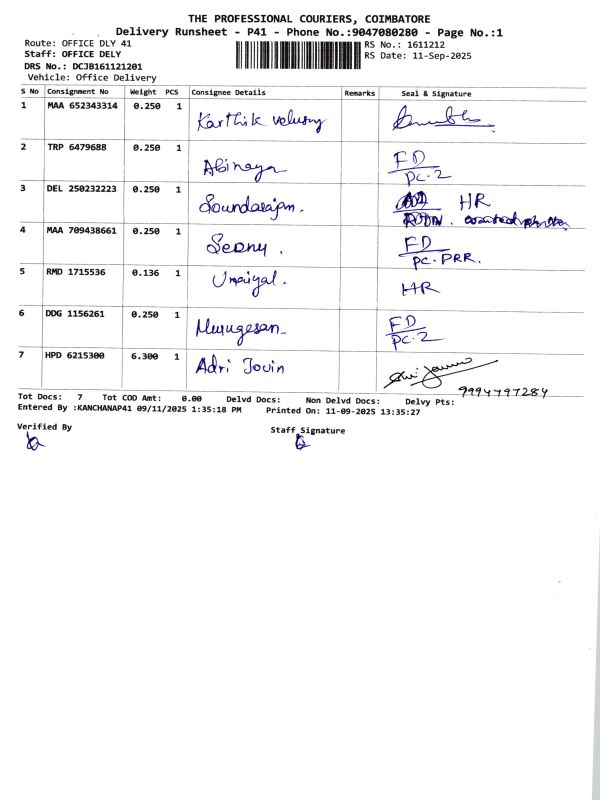 THE PROFESSIONAL COURIERS, COIMBATORE
Delivery Runsheet - P41 - Phone No.:9047080280 - Page No.:1
Route: OFFICE DLY 41
RS No.: 1611212
Staff: OFFICE DELY
RS Date: 11-Sep-2025
DRS No.: DCJB161121201
Vehicle: Office Delivery
S No Consignment No Weight PCS Consignee Details Remarks Seal & Signature
1 MAA 652343314 0.250 1 Karthik velusmy
2 TRP 6479688 0.250 1 Abinaya FD
PC-2
3 DEL 250232223 0.250 1 Soundarajan. HR
4 MAA 709438661 0.250 1 FD
PC-PRR.
5 RMD 1715536 0.136 1 Umaiyal. HR
6 DDG 1156261 0.250 1 Murugesan FD
PC-2
7 HPD 6215300 6.300 1 Adri Jovin
9994797284
Tot Docs: 7 Tot COD Amt: 0.00 Delvd Docs: Non Delvd Docs: Delvy Pts:
Entered By :KANCHANAP41 09/11/2025 1:35:18 PM Printed On: 11-09-2025 13:35:27
Verified By
Staff Signature